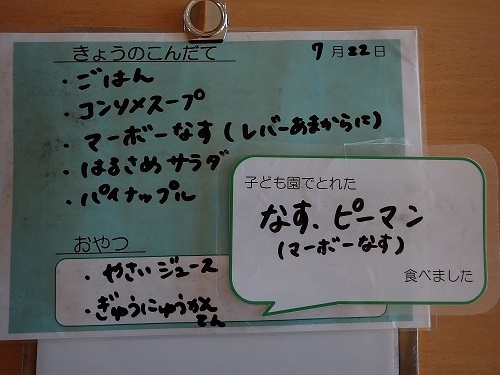 きょうのこんだて 7月22日
・ごはん
・コンソメスープ
・マーボーなす(レバーあまからに)
・はるさめサラダ
・パイナップル
おやつ
・やさいジュース
・ぎゅうにゅうかん
てん
子ども園でとれた
なす、ピーマン
(マーボーなす)
食べました